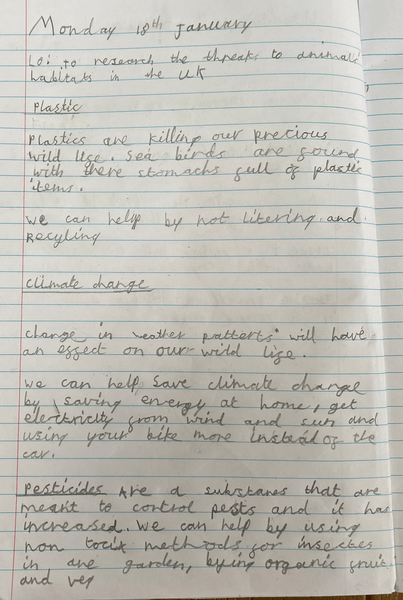 Monday 18th January
Lo: to research the threaks to animals
habitats in the UK
Plastic
Plastics are killing our precious
wild life. Sea birds are found
with there stomachs full of plastic
items.
We can help by not litering and
Recyling
Climate change
Change in weather patterts will have
an effect on our wild life.
We can help save climate change
by saving energy at home, get
electricity from wind and sun and
using your bike more instead of the
car.
Pesticides Are a substanes that are
meant to control pests and it has
increased. We can help by using
non toxix methods for insectes
in are garden, bying organic fruit
and veg